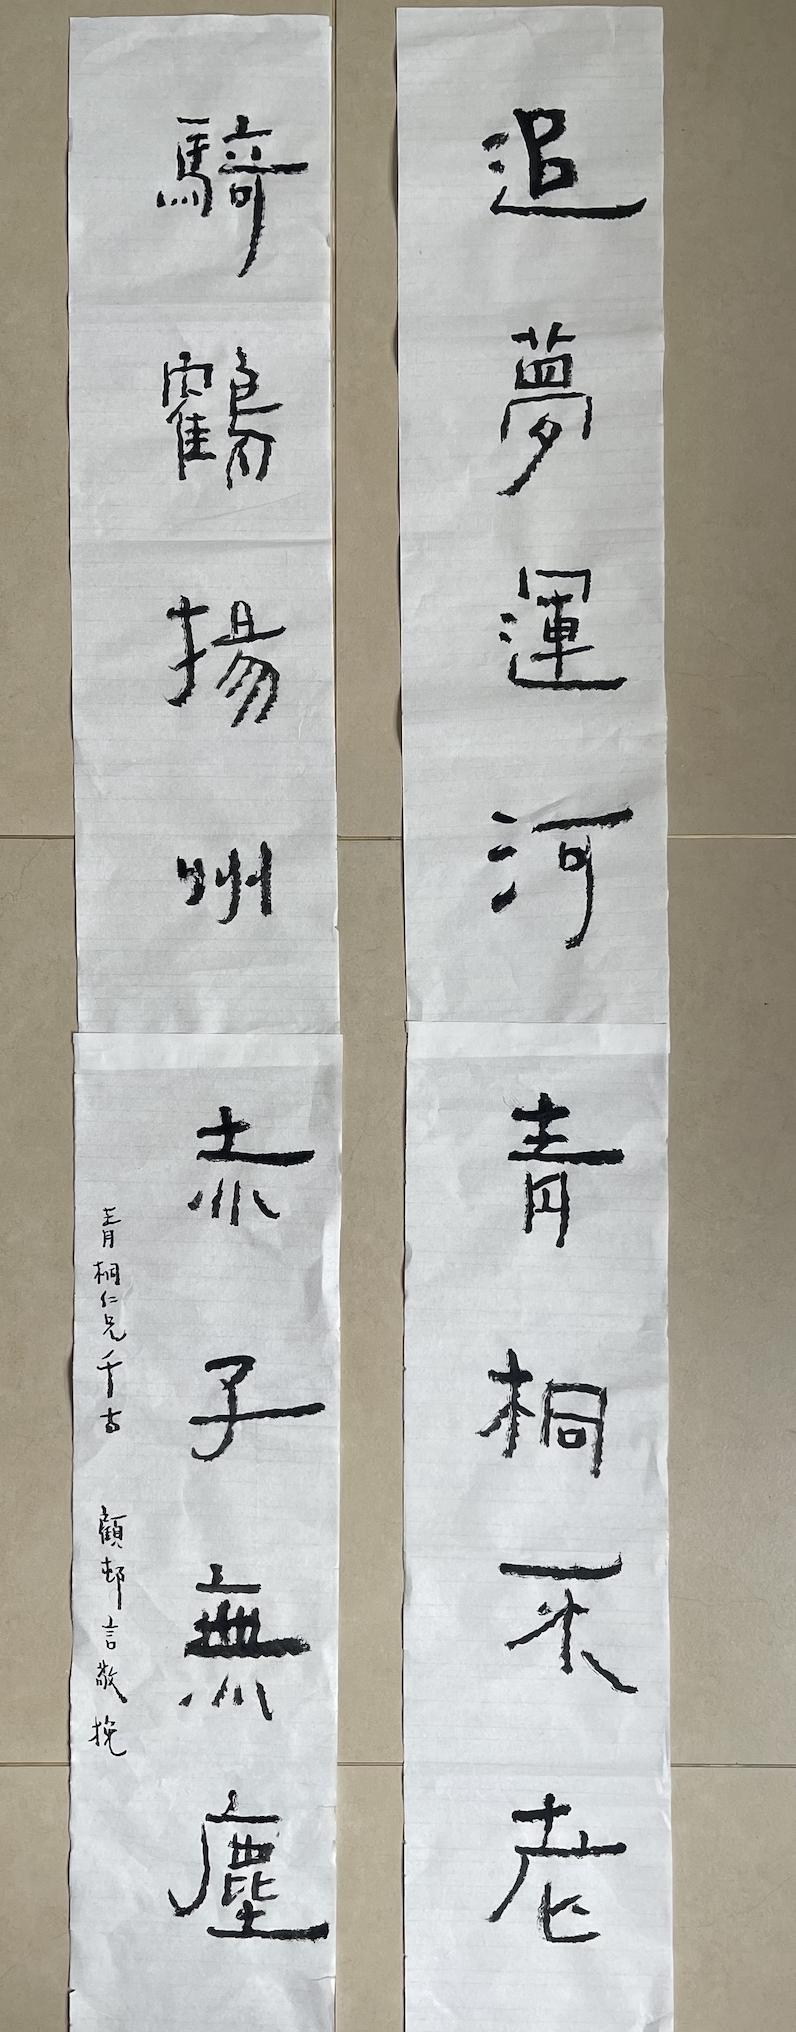 追夢運河青桐不老
騎鶴揚州赤子無塵
青桐仁兄千古
顧邨言敬挽